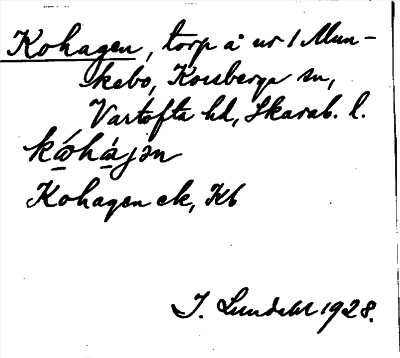 Kohagen, torp å nr 1 Mun-
kebo, Korsberga sn,
Vartofta hd, Skarab. l.
kǿhájən
Kohagen ek, Kb
I. Lundahl 1928.